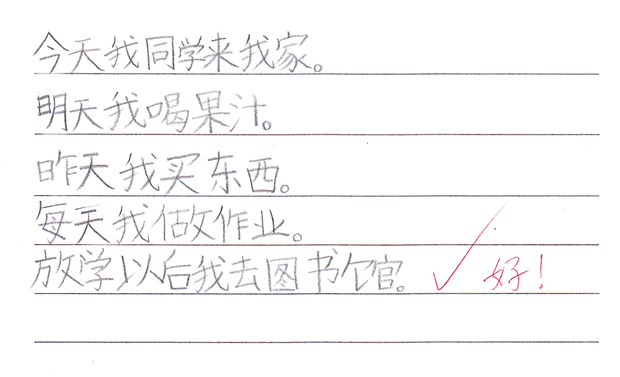 今天我同学来我家。
明天我喝果汁。
昨天我买东西。
每天我做作业。
放学以后我去图书馆。 好！